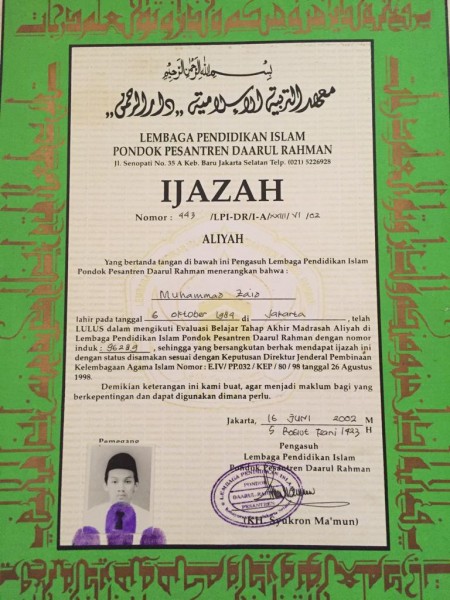 بسم الله الرحمن الرحيم
معهد التربية الإسلامية "دار الرحمن"
LEMBAGA PENDIDIKAN ISLAM
PONDOK PESANTREN DAARUL RAHMAN
Jl. Senopati No. 35 A Keb. Baru Jakarta Selatan Telp. (021) 5226928
IJAZAH
Nomor : 443 /LPI-DR/I-A/XXIII/VI/02
ALIYAH
Yang bertanda tangan di bawah ini Pengasuh Lembaga Pendidikan Islam
Pondok Pesantren Daarul Rahman menerangkan bahwa :
Muhammad Zaid
lahir pada tanggal 6 Oktober 1984 di Jakarta, telah
LULUS dalam mengikuti Evaluasi Belajar Tahap Akhir Madrasah Aliyah di
Lembaga Pendidikan Islam Pondok Pesantren Daarul Rahman dengan nomor
induk : 96289, sehingga yang bersangkutan berhak mendapat ijazah ini
dengan status disamakan sesuai dengan Keputusan Direktur Jenderal Pembinaan
Kelembagaan Agama Islam Nomor : E.IV/ PP.032 / KEP / 80 / 98 tanggal 26 Agustus
1998.
Demikian keterangan ini kami buat, agar menjadi maklum bagi yang
berkepentingan dan dapat digunakan dimana perlu.
Jakarta, 16 JUNI 2002 M
5 1423 H
Pemegang
Pengasuh
Lembaga Pendidikan Islam
Pondok Pesantren Daarul Rahman
LEMBAGA PENDIDIKAN ISLAM
PONDOK
DAARUL RAHMAN
PESANTREN
(KH. Syukron Ma'mun)